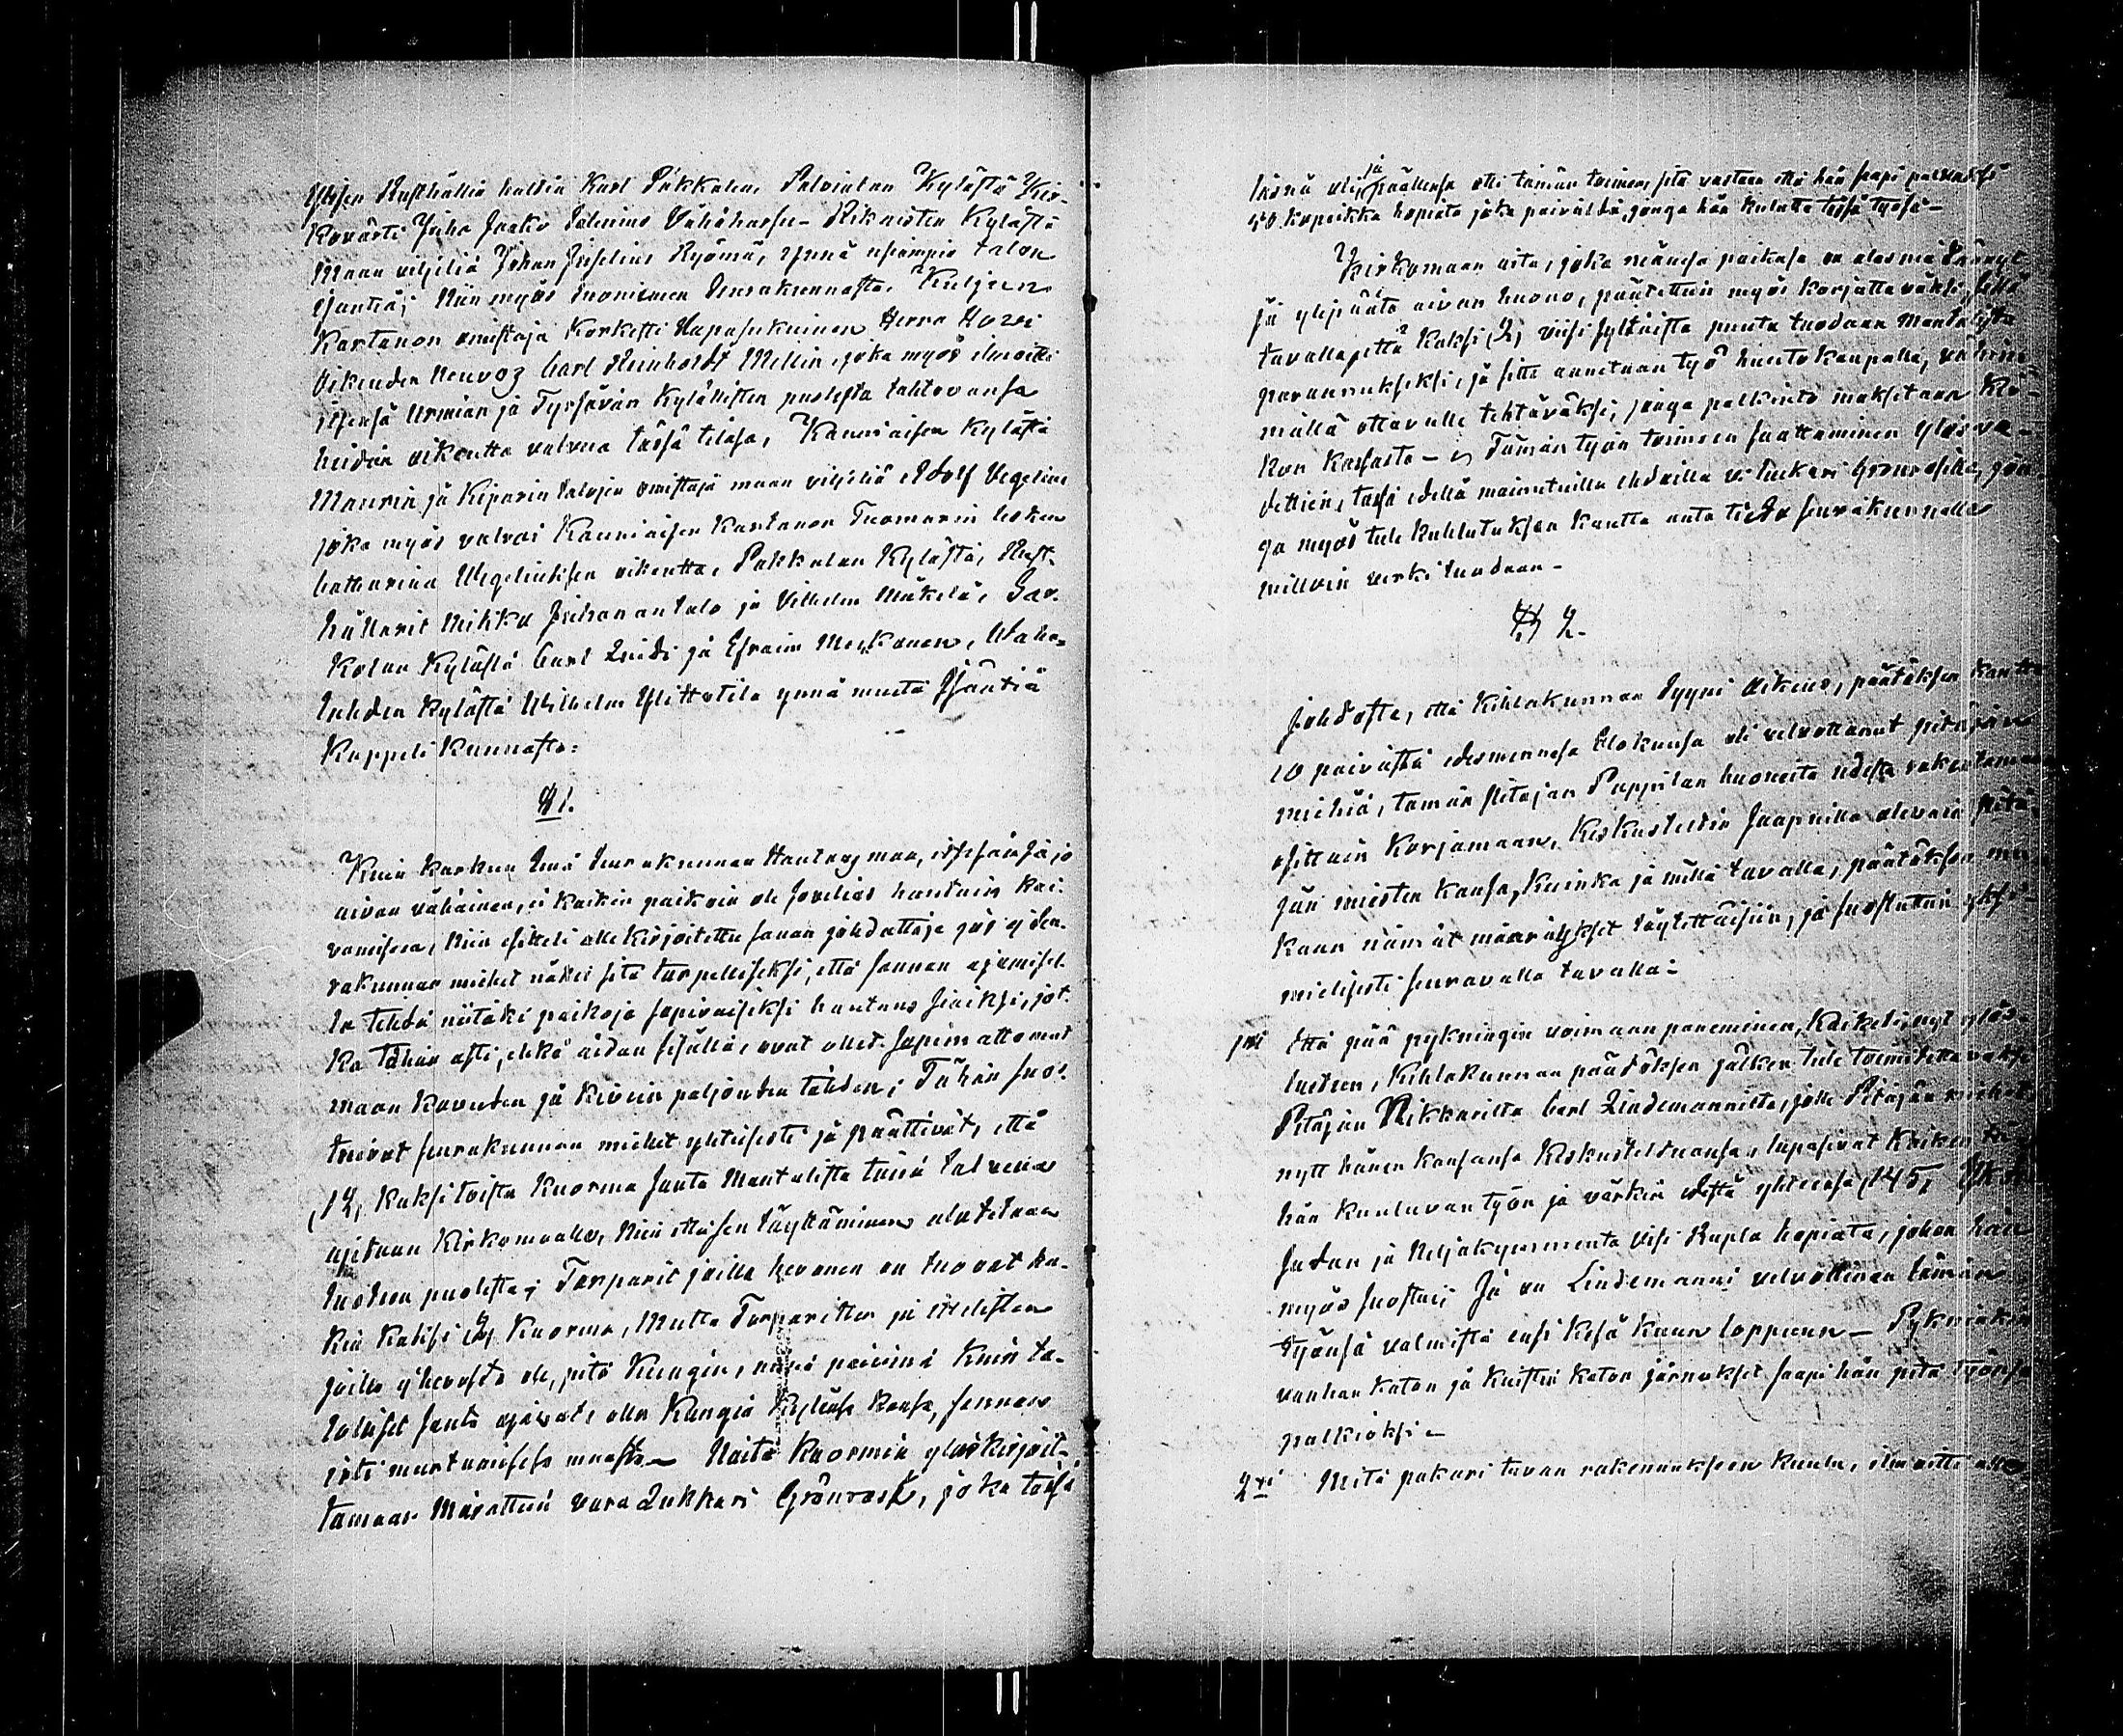 Ylisen Rusthållin haltia Karl Pakkalen, Palvialan Kylästä Kir-
kovärti Juho Jaako Salenius Vähähaaru- Rikaisten Kylästä
Maan viljeliä Johan Juselius Ryömä, ynnä usiampia talon
isäntiä; Niin myös Suoniemen Seurakunnasta, Kuljun
Kartanon omistaja Korkesti Herra Hovi
Oikeuden Neuvos Carl Reinholdt Mellin, joka myös ilmoitti
itsensä Urmian ja Tyrisävän Kylällisten puolesta tahtovansa
heidän oikeutta valvoa tässä tilasa, Kauniaisen Kylästä
Maurin ja Kiparin talojen omistaja maan viljeliä Adolf Vegelius
joka myös valvoi Kauniaisen Kartanon Tuomarin lesken
Catharina Wegeliuksen oikeutta, Pakkalan Kylästä, Rust-
hållarit Mikko Juhanantalo ja Vilhelm Mäkelä, Sar-
kolan Kylästä Carl Quidi ja Efraim Meskanen, Waha-
lahden Kylästä Wilhelm Ylittotila ynnä muita Isäntiä
Kappeli Kunnasta:
§ 1.
Kuin Karkun Emä Seurakunnan Hautaus maa, itsesänsä jo
aivan vähäinen, ei kaikin paikoin ole sovelias hautain kai-
vamisesa, niin esitteli alle kirjoitettu sanan johdattaja jos ei Seu-
rakunnan miehet näkisi sitä tarpelliseksi, että sannan ajamisel-
la tehdä niitäki paikoja sopivaisiksi hautaus sioiksi, jot-
ka tähän asti, ehkä aidan sisällä, ovat ollet sopimattomat
maan kovuden ja kivein paljouden tähden; Tähän suos-
tuivat seurakunnan miehet yhteisesti ja päättivät, että
(12) Kaksitoista kuorma santa Mantalista tänä talvena
ajetaan Kirkomaalle, niin että sen täyttäminen aloitetaan
luoteen puolesta; Torparit joilla hevonen on tuovat ku-
kin kaksi (2) Kuorma, Mutta Torparitten ja itellisten
joilla ei hevosta ole, pitä Kungin, niinä päivinä kuin ta-
loliset santa ajavat, olla Kungin Kylänsä kansa, sannan
ja muasa. Näitä Kuormia yloskirjoit-
tamaan Määrättiin vara Lukkari Grönroos, joka tässä
läsnä oli, ja päällensä otti tämän toimen, sitä vastaan että hän saapi palkaksi
50 kopeikka hopiata joka päivältä, jonga hän kulutta tässä työsä-
Kirkomaan aita, joka monesa paikasa on alas
ja ylipäätä aivan huono, päätettiin myös korjattavaksi, sillä
tavalla että kaksi (2) viisi syltäistä puuta tuodaan Mantalista
parannukseksi, ja sitte annetaan työ huutokaupalla, vähim-
mällä ottavalle tehtäväksi, jonga palkinto maksetaan Kir-
kon Kassasta - Tämän työn toimeen saattaminen ylösva-
dettiin, tässä edellä mainituilla ehdoilla v: lukkari Grönroosilla, jon-
ga myös tule kuulutuksen kautta anta tiedo seurakunnalle
milloin verki tuodaan-
§ 2.
Johdosta, että Kihlakunnan Syyni Oikeus, päätöksen kautta
10 päivästä edesmennesä Elokuusa oli velvottanut pitäjän
miehiä, tämän Pitäjän Pappilan huoneita udesta rakentamaan
osittain Korjamaan, Keskusteltiin saapuilla olevain Pitä-
jän miesten kansa, kuinka ja millä tavalla, päätöksen mu-
kaan nämät määräykset täytettäisiin, ja suostuttiin yksi-
mielisesti seuravalla tavalla:
1ksi Että pää pykningin voimaan paneminen, kaikesa, nyt ylös-
luetun, Kihlakunnan päätöksen jälken tule toimitettavaksi
Pitäjän Nikkarilta Carl Lindemannilta, jolle Pitäjän miehet
nytt hänen kansansa keskusteltuansa, lupasivat kaiken tä-
hän kuuluvan työn ja värkin edestä yhteensä (145) Yksi
sadan ja Neljakymmenta Viisi Rupla hopiata, johon hän
myös suostui; Ja on Lindemanni velvollinen tämän
työnsä valmistä ensi Kesä Kuun loppuun - Pykningin
vanhan katon ja kuistin katon järnukset saapi hän pitä työnsä
palkioksi -
2xi Mitä pakari tuvan rakennukseen kuulu, ilmoitti alle